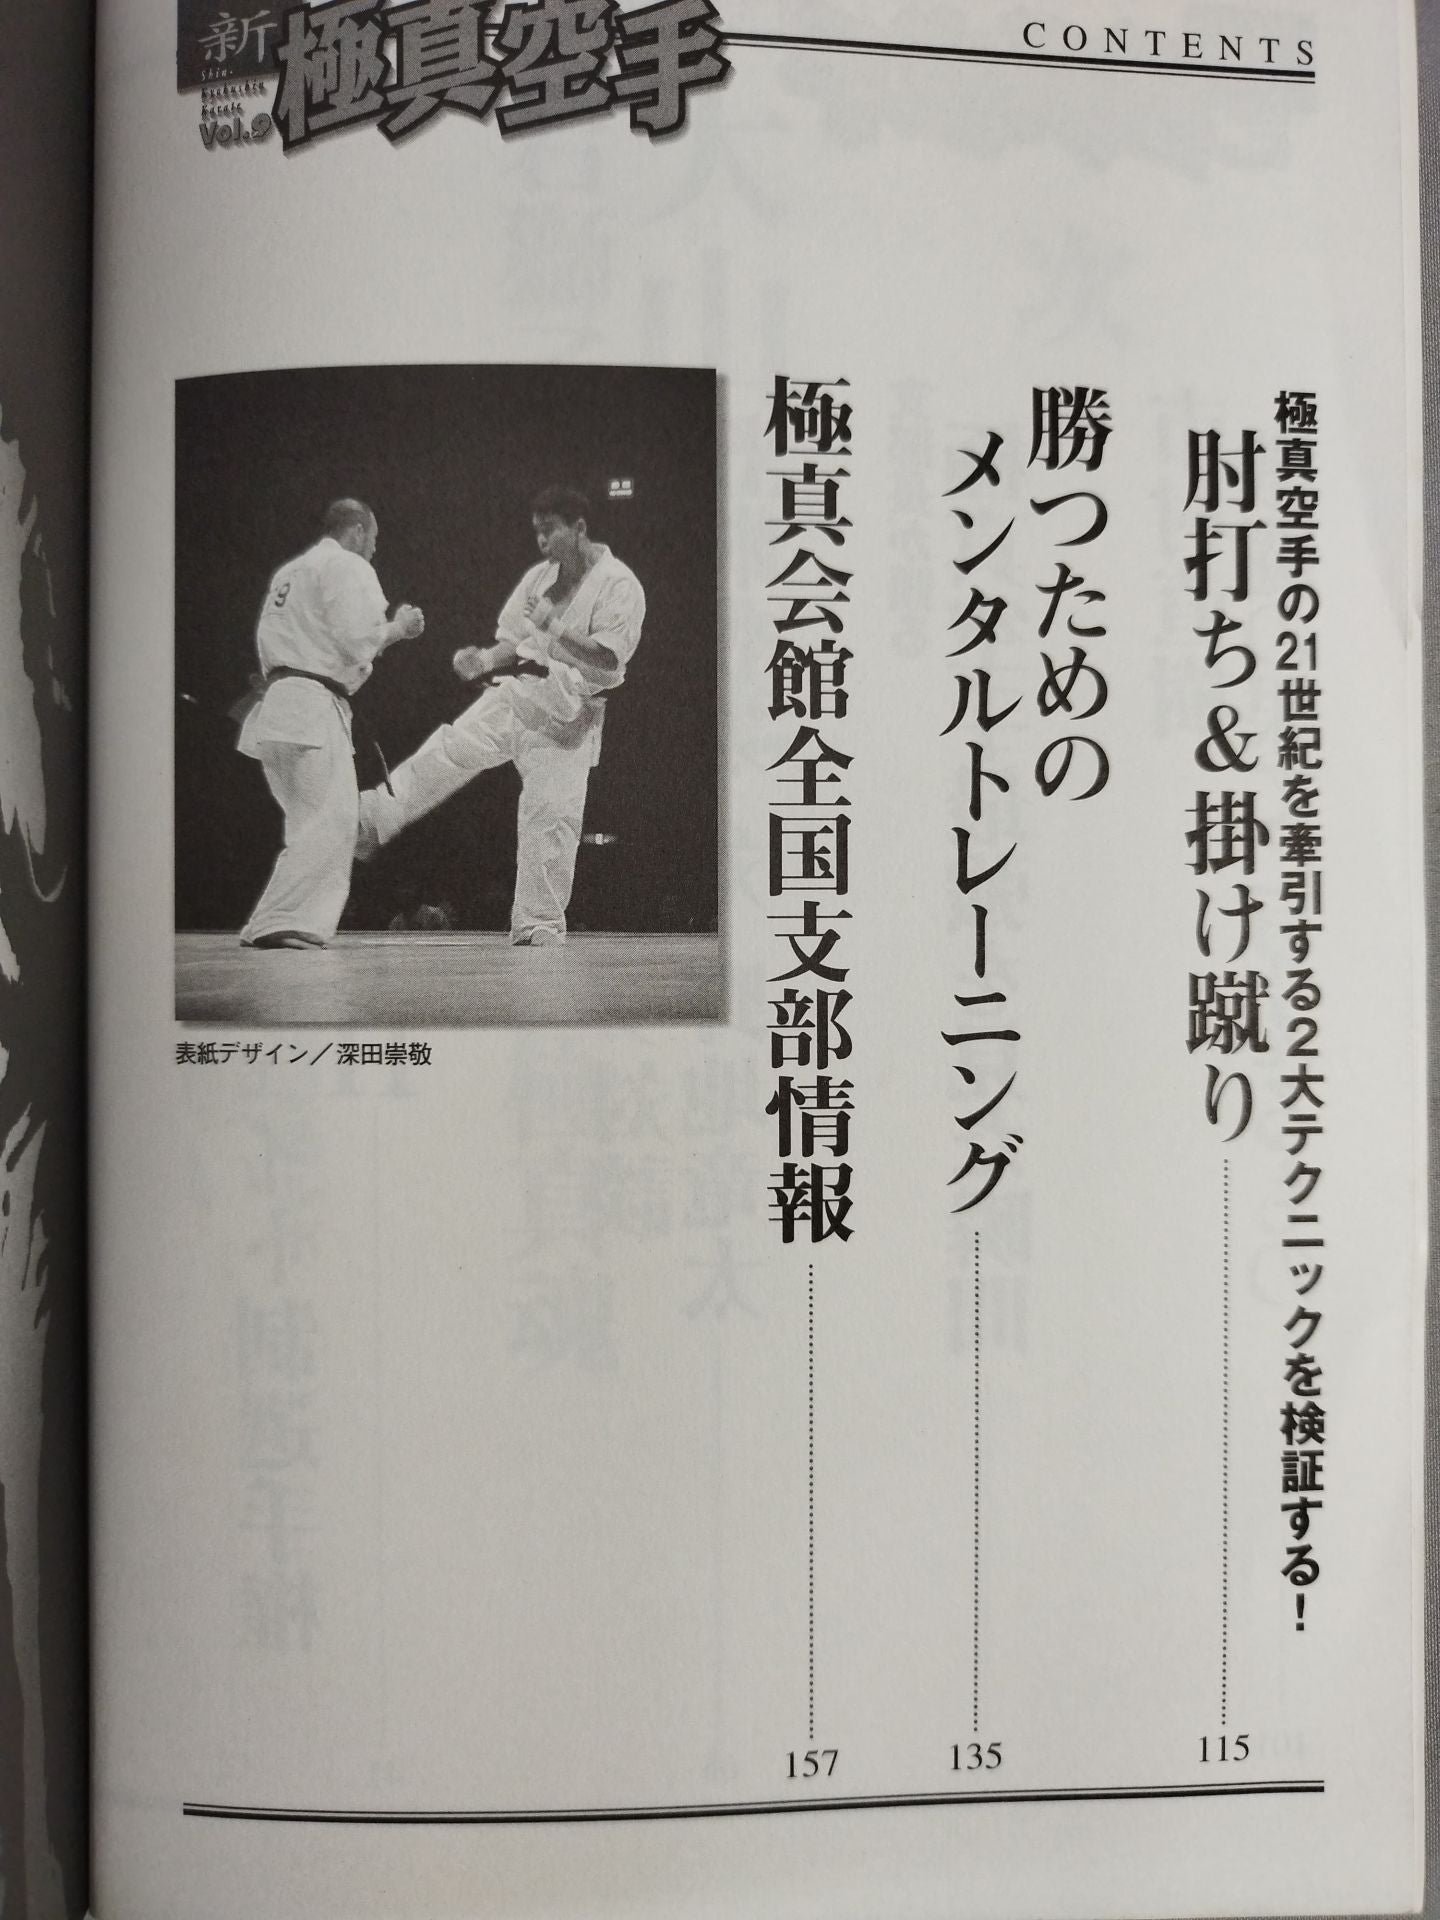 新極真空手
Shin-
Kyokushin
Karate
Vol.9
CONTENTS
極真空手の21世紀を牽引する2大テクニックを検証する！
肘打ち＆掛け蹴り 115
勝つための
メンタルトレーニング 135
極真会館全国支部情報 157
9
表紙デザイン／深田崇敬